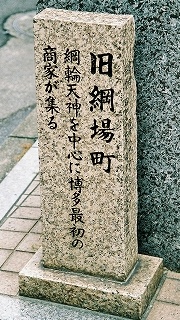 旧綱場町
綱輪天神を中心に博多最初の
商家が集る